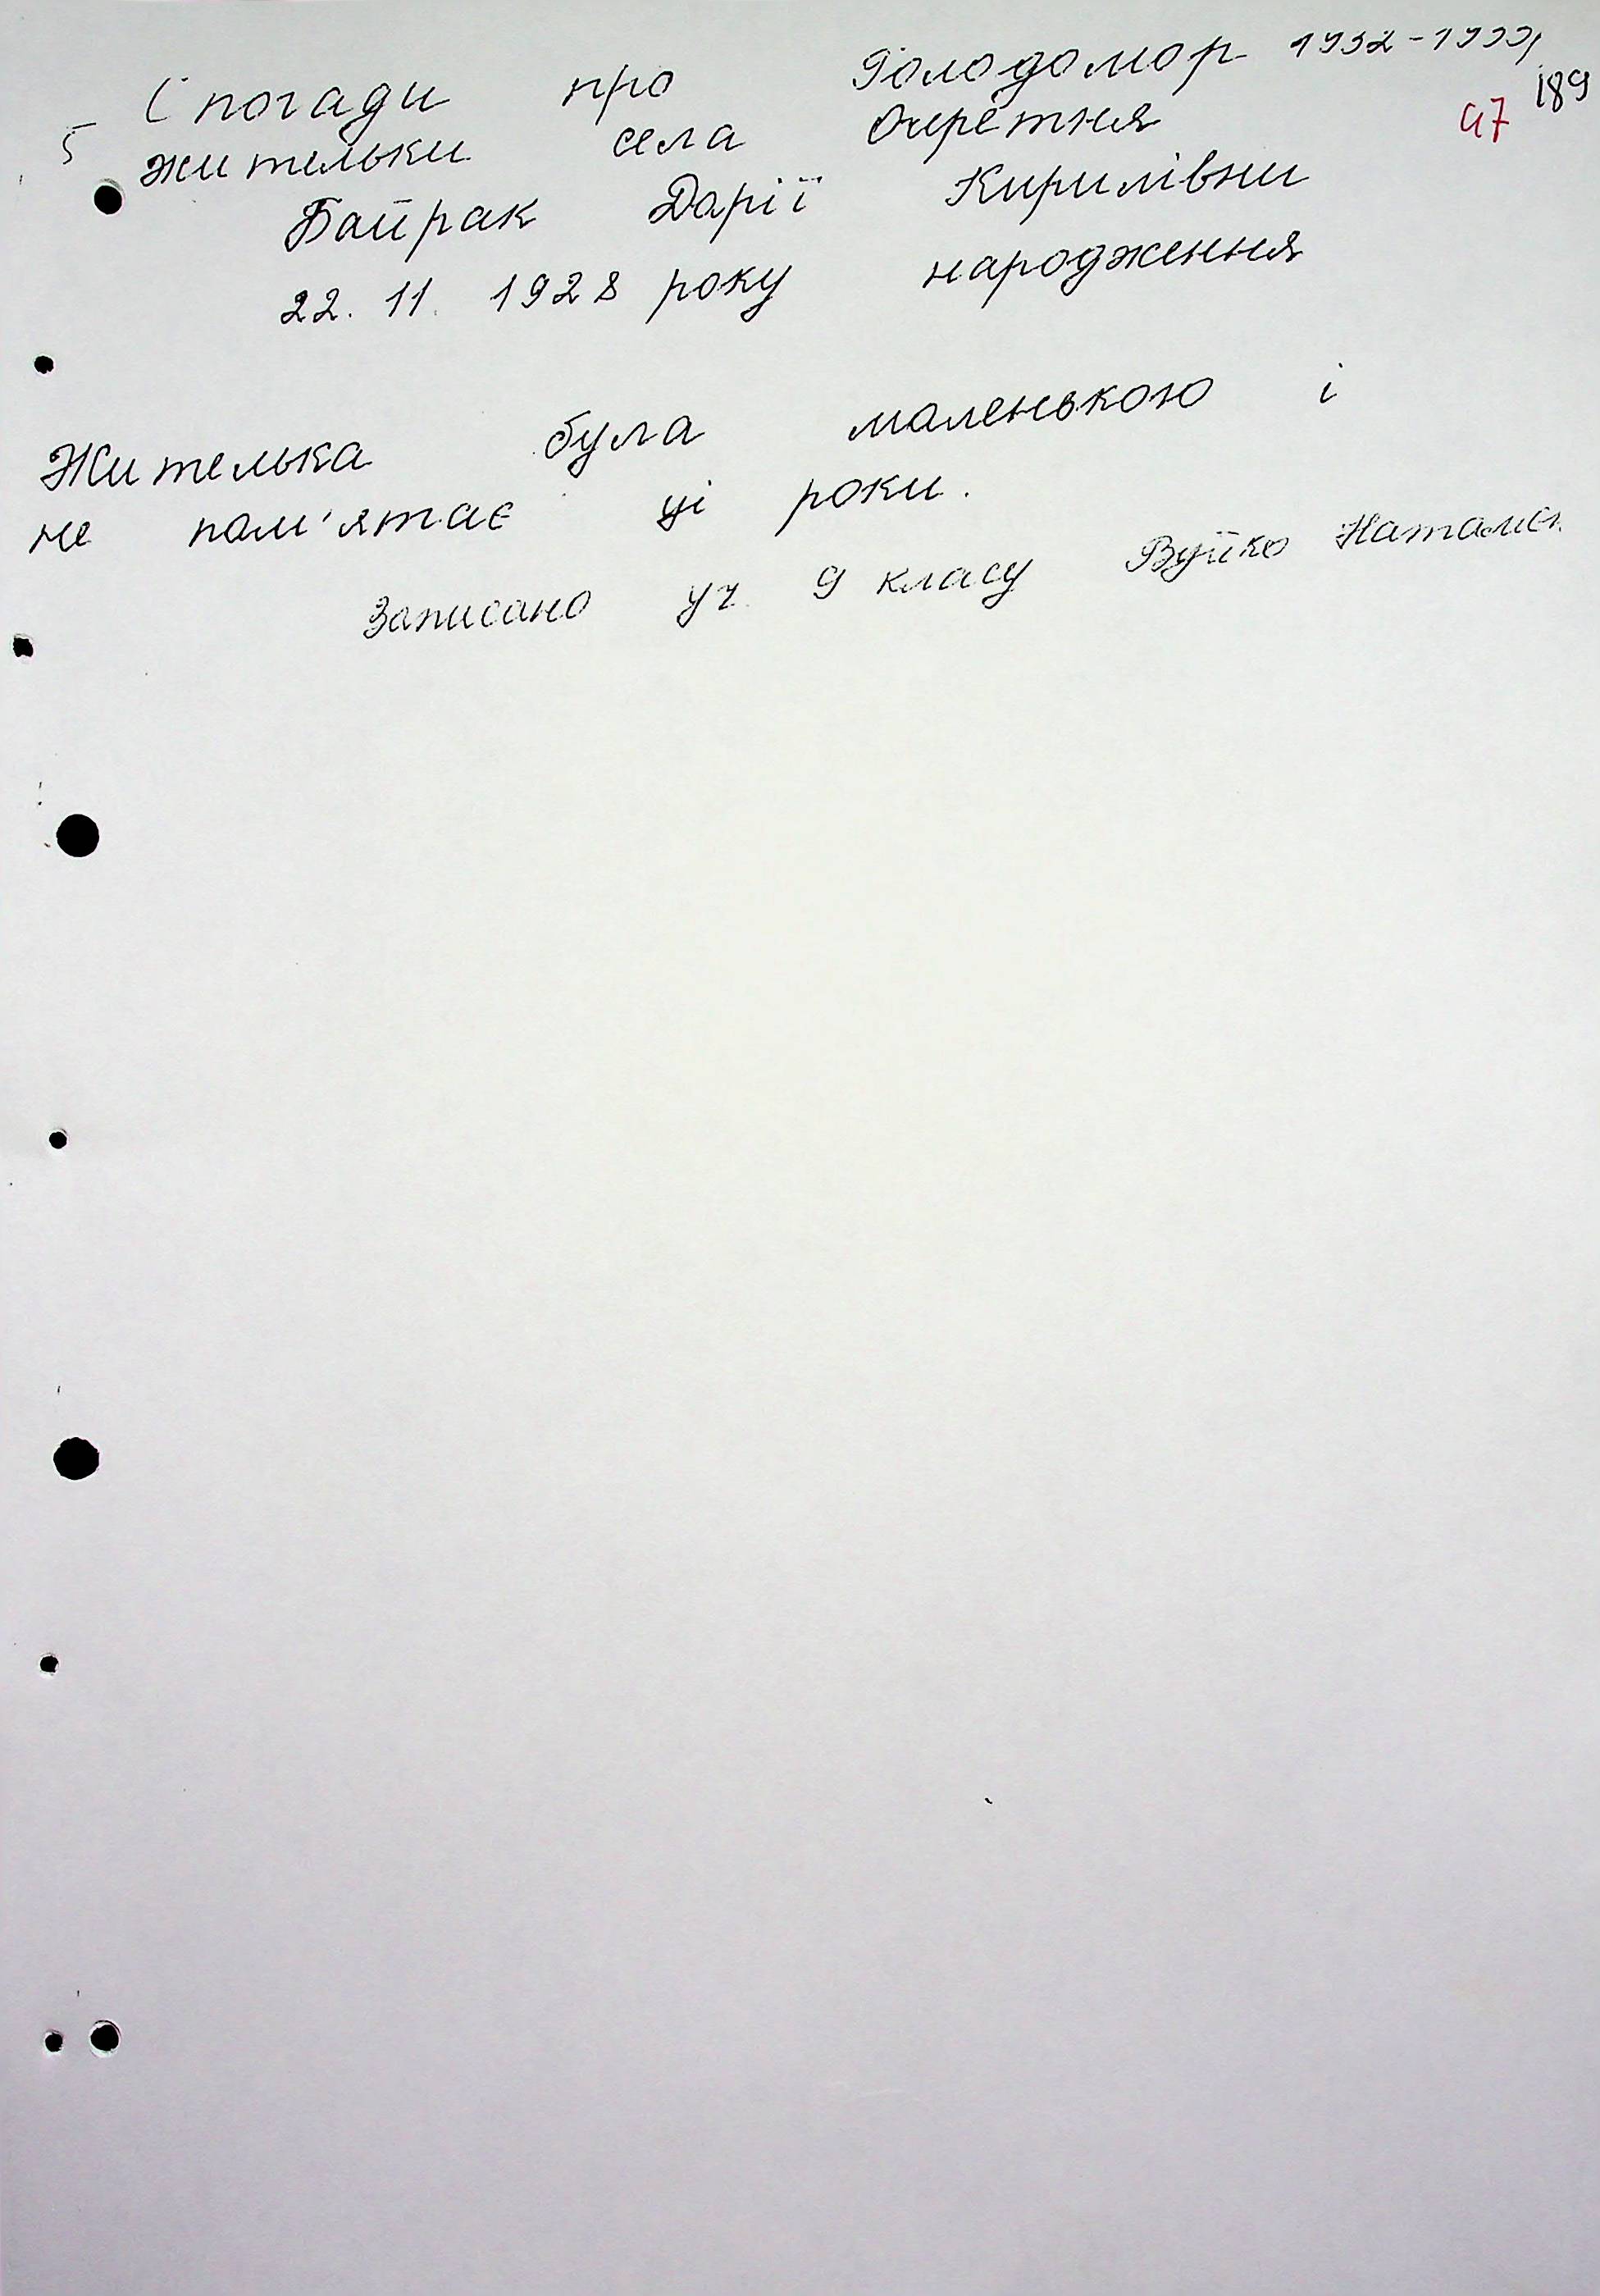 Спогади про Голодомор 1932-1933р
189
47
5 жительки села Очеретня
Байрак Дарії Кирилівни
22. 11. 1928 року народження
Жителька була маленькою і
не пам'ятає ці роки.
Записано уч. 9 класу Вуйко Наталія